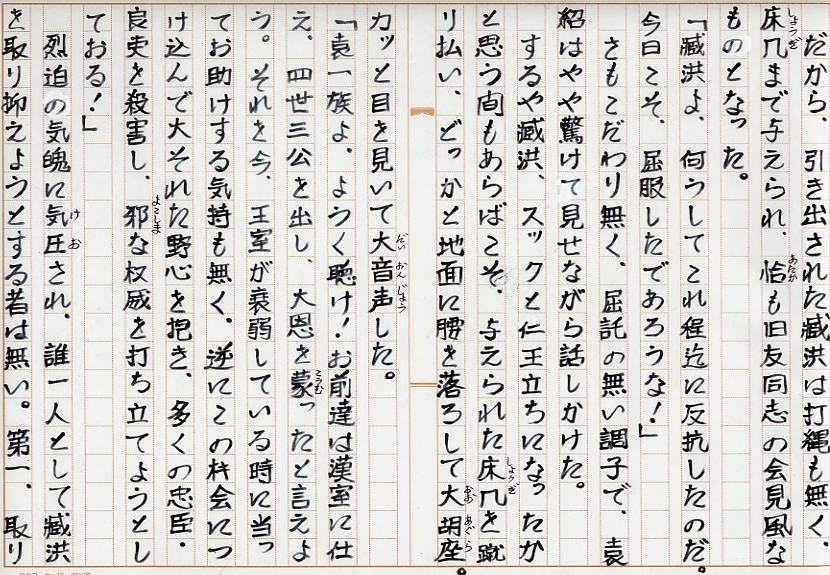 だから、引き出された臧洪は打縄も無く、
床几まで与えられ、恰も旧友同志の会見風な
ものとなった。
「臧洪よ、何うしてこれ程迄に反抗したのだ。
今日こそ、屈服したであろうな！」
さもこだわり無く、屈託の無い調子で、袁
紹はやや驚けて見せながら話しかけた。
するや臧洪、スックと仁王立ちになったか
と思う間もあらばこそ、与えられた床几を蹴
り払い、どっかと地面に腰を落ろして大胡座。
カッと目を見いて大音声した。
「袁一族よ、ようく聴け！お前達は漢室に仕
え、四世三公を出し、大恩を蒙ったと言えよ
う。それを今、王室が衰弱している時に当っ
てお助けする気持も無く、逆にこの機会につ
け込んで大それた野心を抱き、多くの忠臣・
良吏を殺害し、邪な权威を打ち立てようとし
ておる！」
烈迫の気魄に気圧され、誰一人として臧洪
を取り抑えようとする者は無い。第一、取り